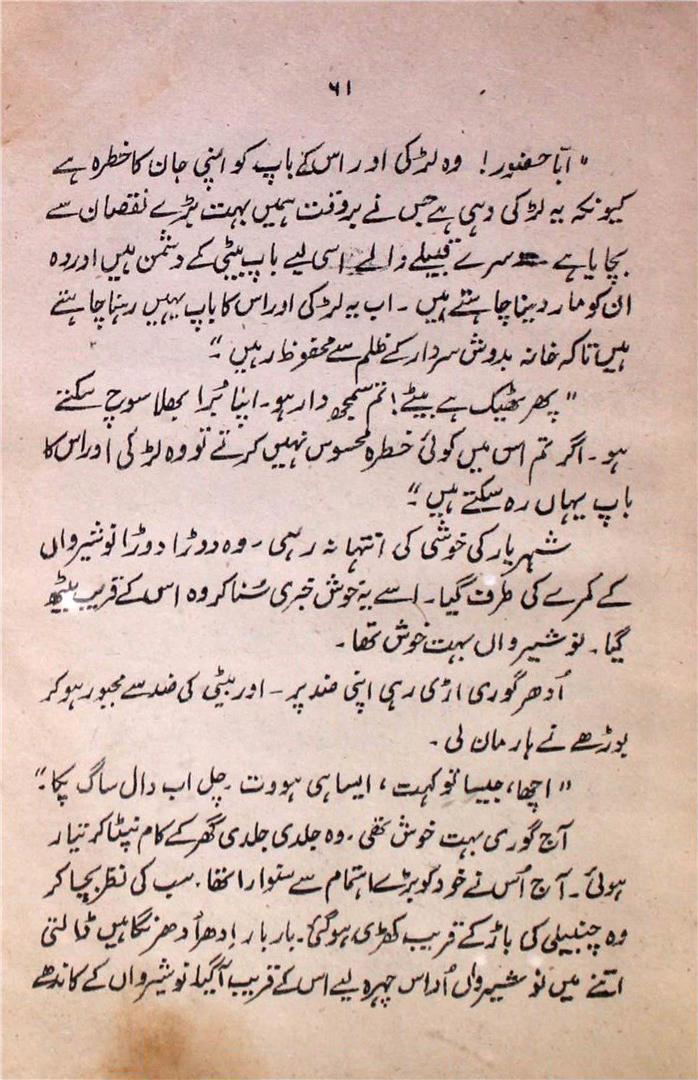 ۶۱
"ابّا حضور! وہ لڑکی اور اس کے باپ کو اپنی جان کا خطرہ ہے
کیونکہ یہ لڑکی وہی ہے جس نے بروقت ہمیں بہت بڑے نقصان سے
بچایا ہے سرے قبیلے والے اسی لیے باپ بیٹی کے دشمن ہیں اور وہ
ان کو مار دینا چاہتے ہیں ۔ اب یہ لڑکی اور اس کا باپ یہیں رہنا چاہتے
ہیں تاکہ خانہ بدوش سردار کے ظلم سے محفوظ رہیں ۔"
"پھر ٹھیک ہے بیٹے! تم سمجھ دار ہو۔ اپنا بُرا بھلا سوچ سکتے
ہو ۔ اگر تم اس میں کوئی خطرہ محسوس نہیں کرتے تو وہ لڑکی اور اس کا
باپ یہاں رہ سکتے ہیں ۔"
شہریار کی خوشی کی انتہا نہ رہی ۔ وہ دوڑا دوڑا نوشیرواں
کے کمرے کی طرف گیا۔ اسے یہ خوش خبری سُنا کر وہ اس کے قریب بیٹھ
گیا ۔ نوشیرواں بہت خوش تھا ۔
اُدھر گوری اڑی رہی اپنی ضد پر ۔ اور بیٹی کی ضد سے مجبور ہو کر
بوڑھے نے ہار مان لی ۔
"اچھا، جیسا تو کہت، ایسا ہی ہووت ۔ چل اب دال ساگ پکا۔"
آج گوری بہت خوش تھی ۔ وہ جلدی جلدی گھر کے کام نپٹا کر تیار
ہوئی ۔ آج اُس نے خود کو بڑے اہتمام سے سنوارا تھا ۔ سب کی نظر بچا کر
وہ چنبیلی کی باڑ کے قریب کھڑی ہو گئی۔ بار بار اِدھر اُدھر نگاہیں ڈالتی
اتنے میں نوشیرواں اُداس چہرہ لیے اس کے قریب آ گیا۔ نوشیرواں کے کاندھے